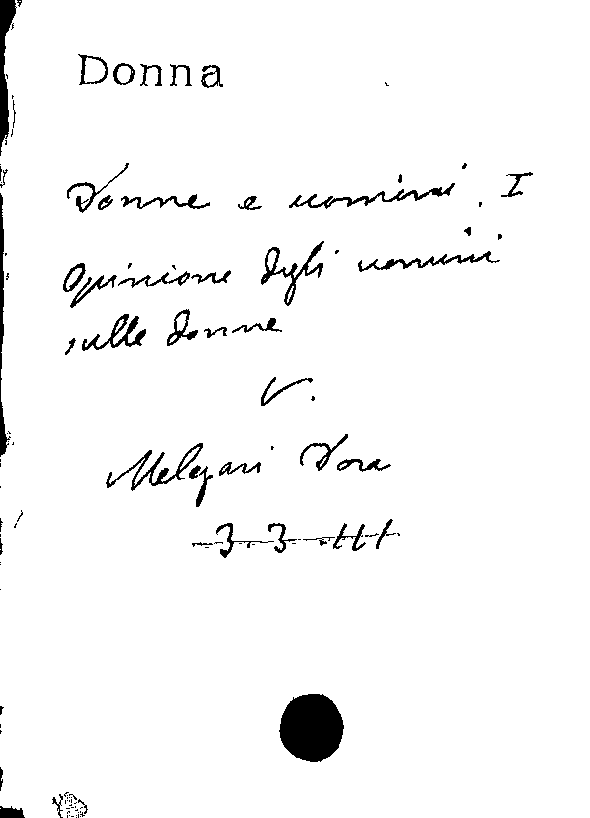 Donna
Donne e uomini. I
Opinione degli uomini
sulle donne
V.
Melegari Dora
3.3.III